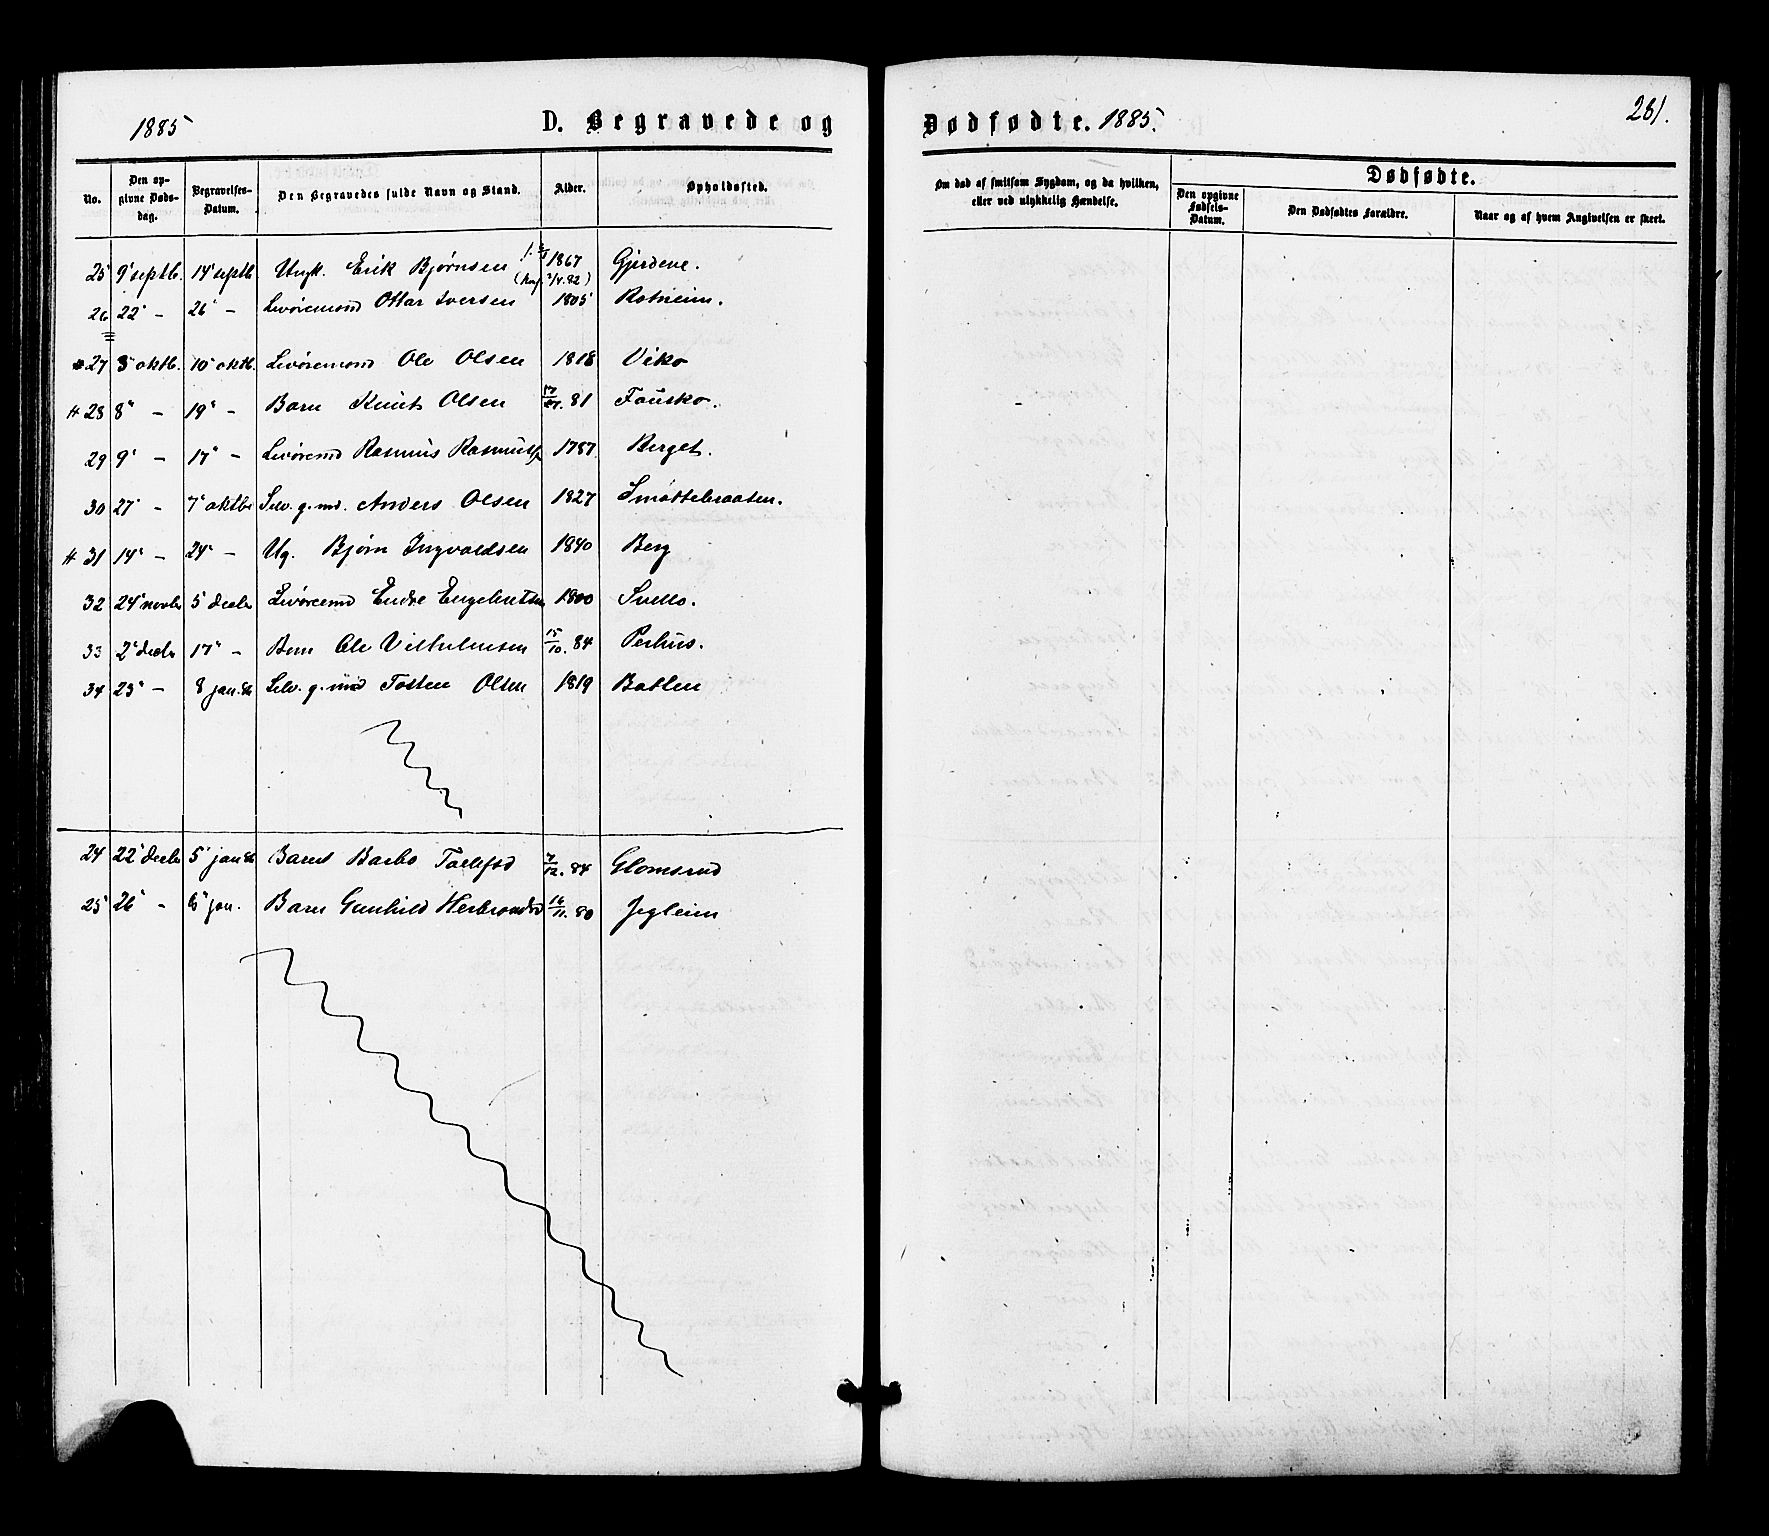 1885 D. Begravede og
No. Den opgivne Dødsdag. Begravelses-Datum. Den Begravedes fulde Navn og Stand. Alder. Opholdssted.
25 9' septb. 14' septb Ungk. Erik Bjørnsen 1867 Gjerdene.
26 22' - 26' - Livøremand Ottar Iversen 1805 Rotneim.
27 3' oktb. 10' oktb. Livøremand Ole Olsen 1818 Viko
28 8' - 19' - Barn Knut Olsen 81 Fausko.
29 9' - 17' - Livøremd Rasmus Rasmuss 1787 Berget.
30 27' - 7' oktbr Selv. g. md. Anders Olsen 1827 Smøttebraaten.
31 14' - 24' - Ug. Bjørn Ingvaldsen 1840 Berg
32 24' novbr 5' decbr Livøremd Endre Engebretsen 1800 Svello.
33 2' decbr 17' - Barn Ole Vilhelmsen 15/10. 84 Perhus.
34 23' - 8 jan. Selv. g. md Tosten Olsen 1819 Batlen
24 22' decbr 5' jan Barnet Barbo 7/12. 84 Glomsrud
25 26' - 6' jan. Barn Gunhild Herbrandsd 16/11. 80 Jegleim
Dødfødte. 1885. 261.
Om død af smitsom Sygdom, og da hvilken, eller ved ulykkelig Hændelse. Dødfødte.
Den opgivne Fødsels-Datum. Den Dødfødtes Forældre. Naar og af hvem Angivelsen er skeet.